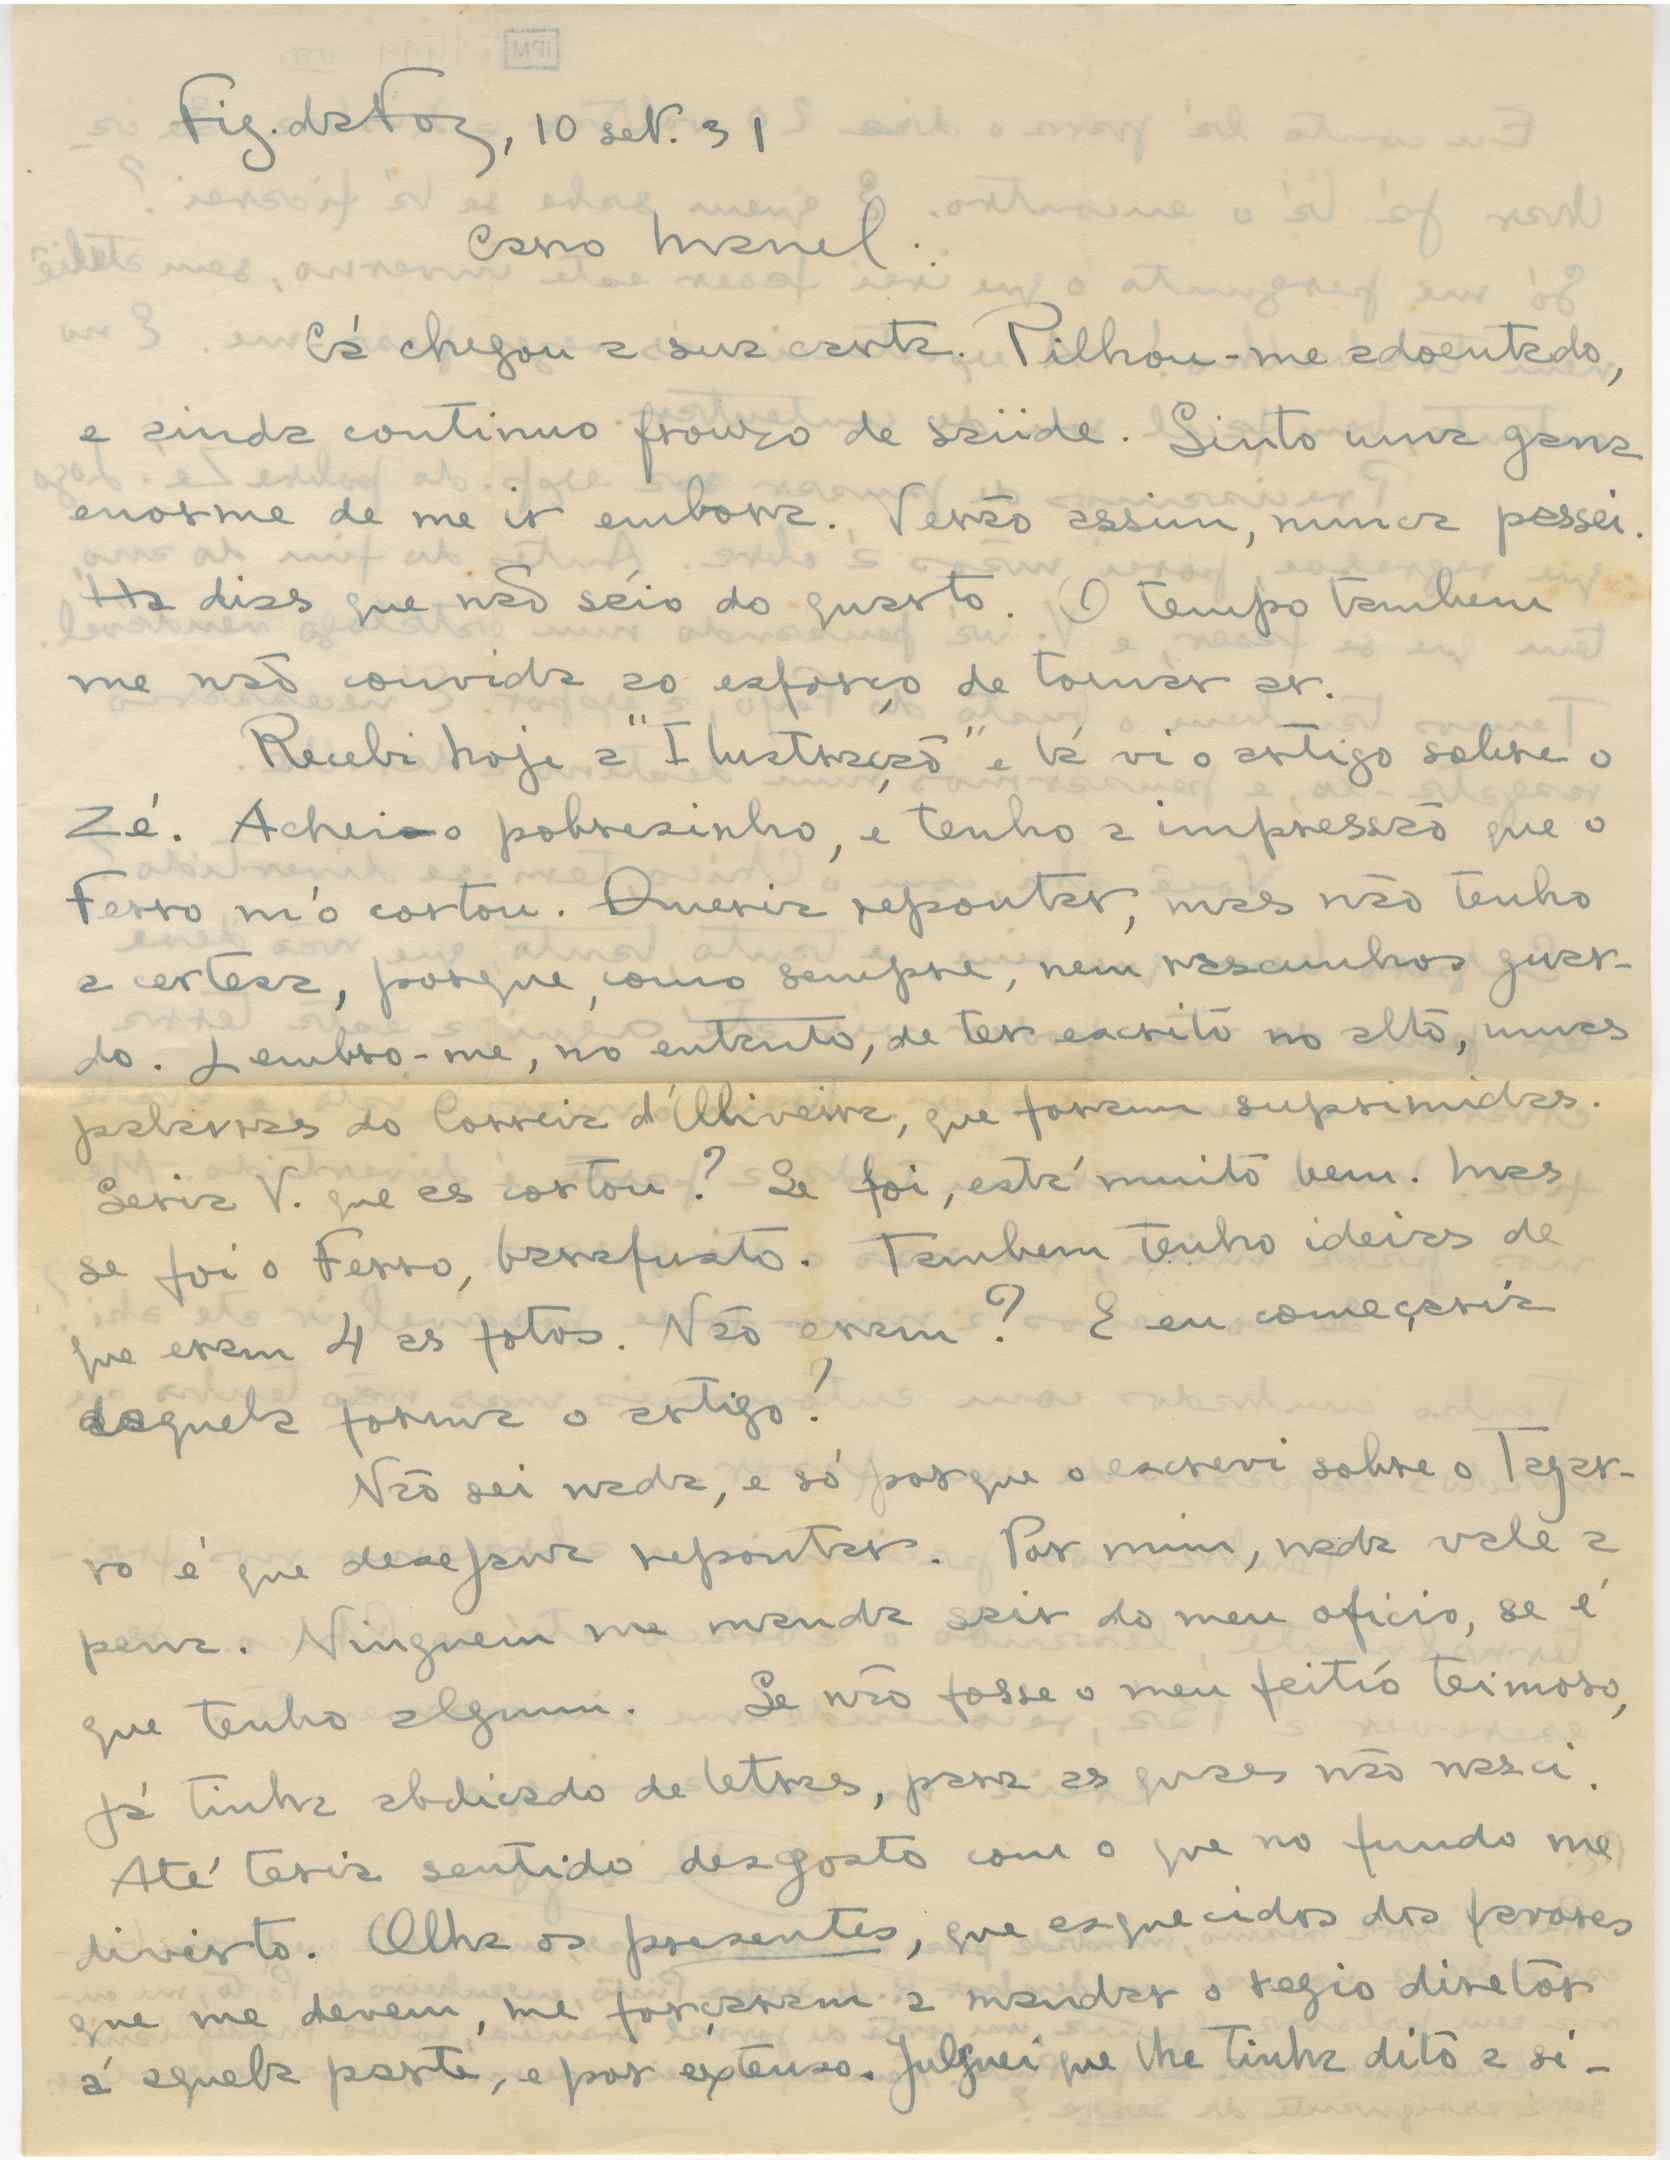 Fig. da Foz, 10 set. 31
Caro Manel:
Cá chegou a sua carta. Pilhou-me adoentado,
e ainda continuo frouxo de saüde. Sinto uma gana
enorme de me ir embora. Verão assim, nunca passei.
Ha dias que não sáio do quarto. O tempo tambem
me não convida ao esforço de tomar ar.
Recebi hoje a "Ilustração" e lá vi o artigo sobre o
Zé. Achei-o pobresinho, e tenho a impressão que o
Ferro m'o cortou. Queria repontar, mas não tenho
a certesa, porque, como sempre, nem rascunhos guar-
do. Lembro-me, no entanto, de ter escrito no alto, umas
palavras do Correia d'Oliveira, que foram suprimidas.
Seria V. que as cortou? Se foi, está muito bem. Mas
se foi o Ferro, barafusto. Tambem tenho ideias de
que eram 4 as fotos. Não eram? E eu começaria
daquela forma o artigo?
Não sei nada, e só porque o escrevi sobre o Tagar-
ro é que desejava repontar. Por mim, nada vale a
pena. Ninguem me manda sair do meu oficio, se é
que tenho algum. Se não fosse o meu feitio teimoso,
já tinha abdicado de letras, para as quaes não nasci.
Até teria sentido desgosto com o que no fundo me
diverto. Olha os presentes, que esquecidos dos favores
que me devem, me forçaram a mandar o regio diretor
á aquela parte, e por extenso. Julguei que lhe tinha dito a si-